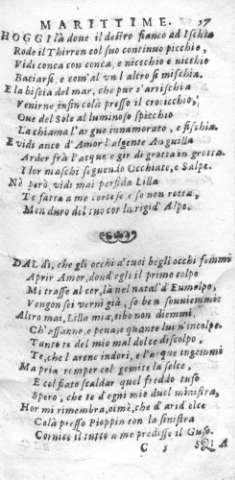 MARITTIME. 57
HOGGI là doue il destro fianco ad Ischia
Rode il Thirren col suo continuo picchio,
Vidi conca con conca, e nicchio e nicchio
Baciarsi e com'al vn l'altro si mischia.
E la biscia del mar, che pur s'arrischia
Venirne infin colà presso il crocicchio,
Oue del Sole al luminoso spicchio
La chiama l'angue innamorato, e fischia.
E vidi anco d'Amor l'algente Anguilla
Arder frà l'acque e gir di grotta in grotta
I lor maschi seguendo Occhiate, e Salpe.
Nè però vidi mai perfida Lilla
Te fatta a me cortese, e se non rotta,
Men duro del tuo cor la rigid' Alpe.
DAL dì, che gli occhi a' tuoi begli occhi
Aprir Amor, dond' egli il primo colpo
Mi trasse al cor, là nel natal d'Eumolpo,
Vengon sei verni già, se ben souuiemmi:
Altro mai, Lilla mia, tibo non diemmi,
Ch' affanno, e pena, e quante lui n'incolpo.
Tanto te del mio mal dolce discolpo,
Te, che l'arene indori, e l'acque
Ma pria romper col gemito la selce,
E col fiato scaldar quel freddo tufo
Spero, che te d'ogni mio duol ministra,
Hor mi rimembra, oimè, che d'arid' elce
Colà presso Pioppin con la sinistra
Cornice il tutto a me predisse il Gufo.
C 5